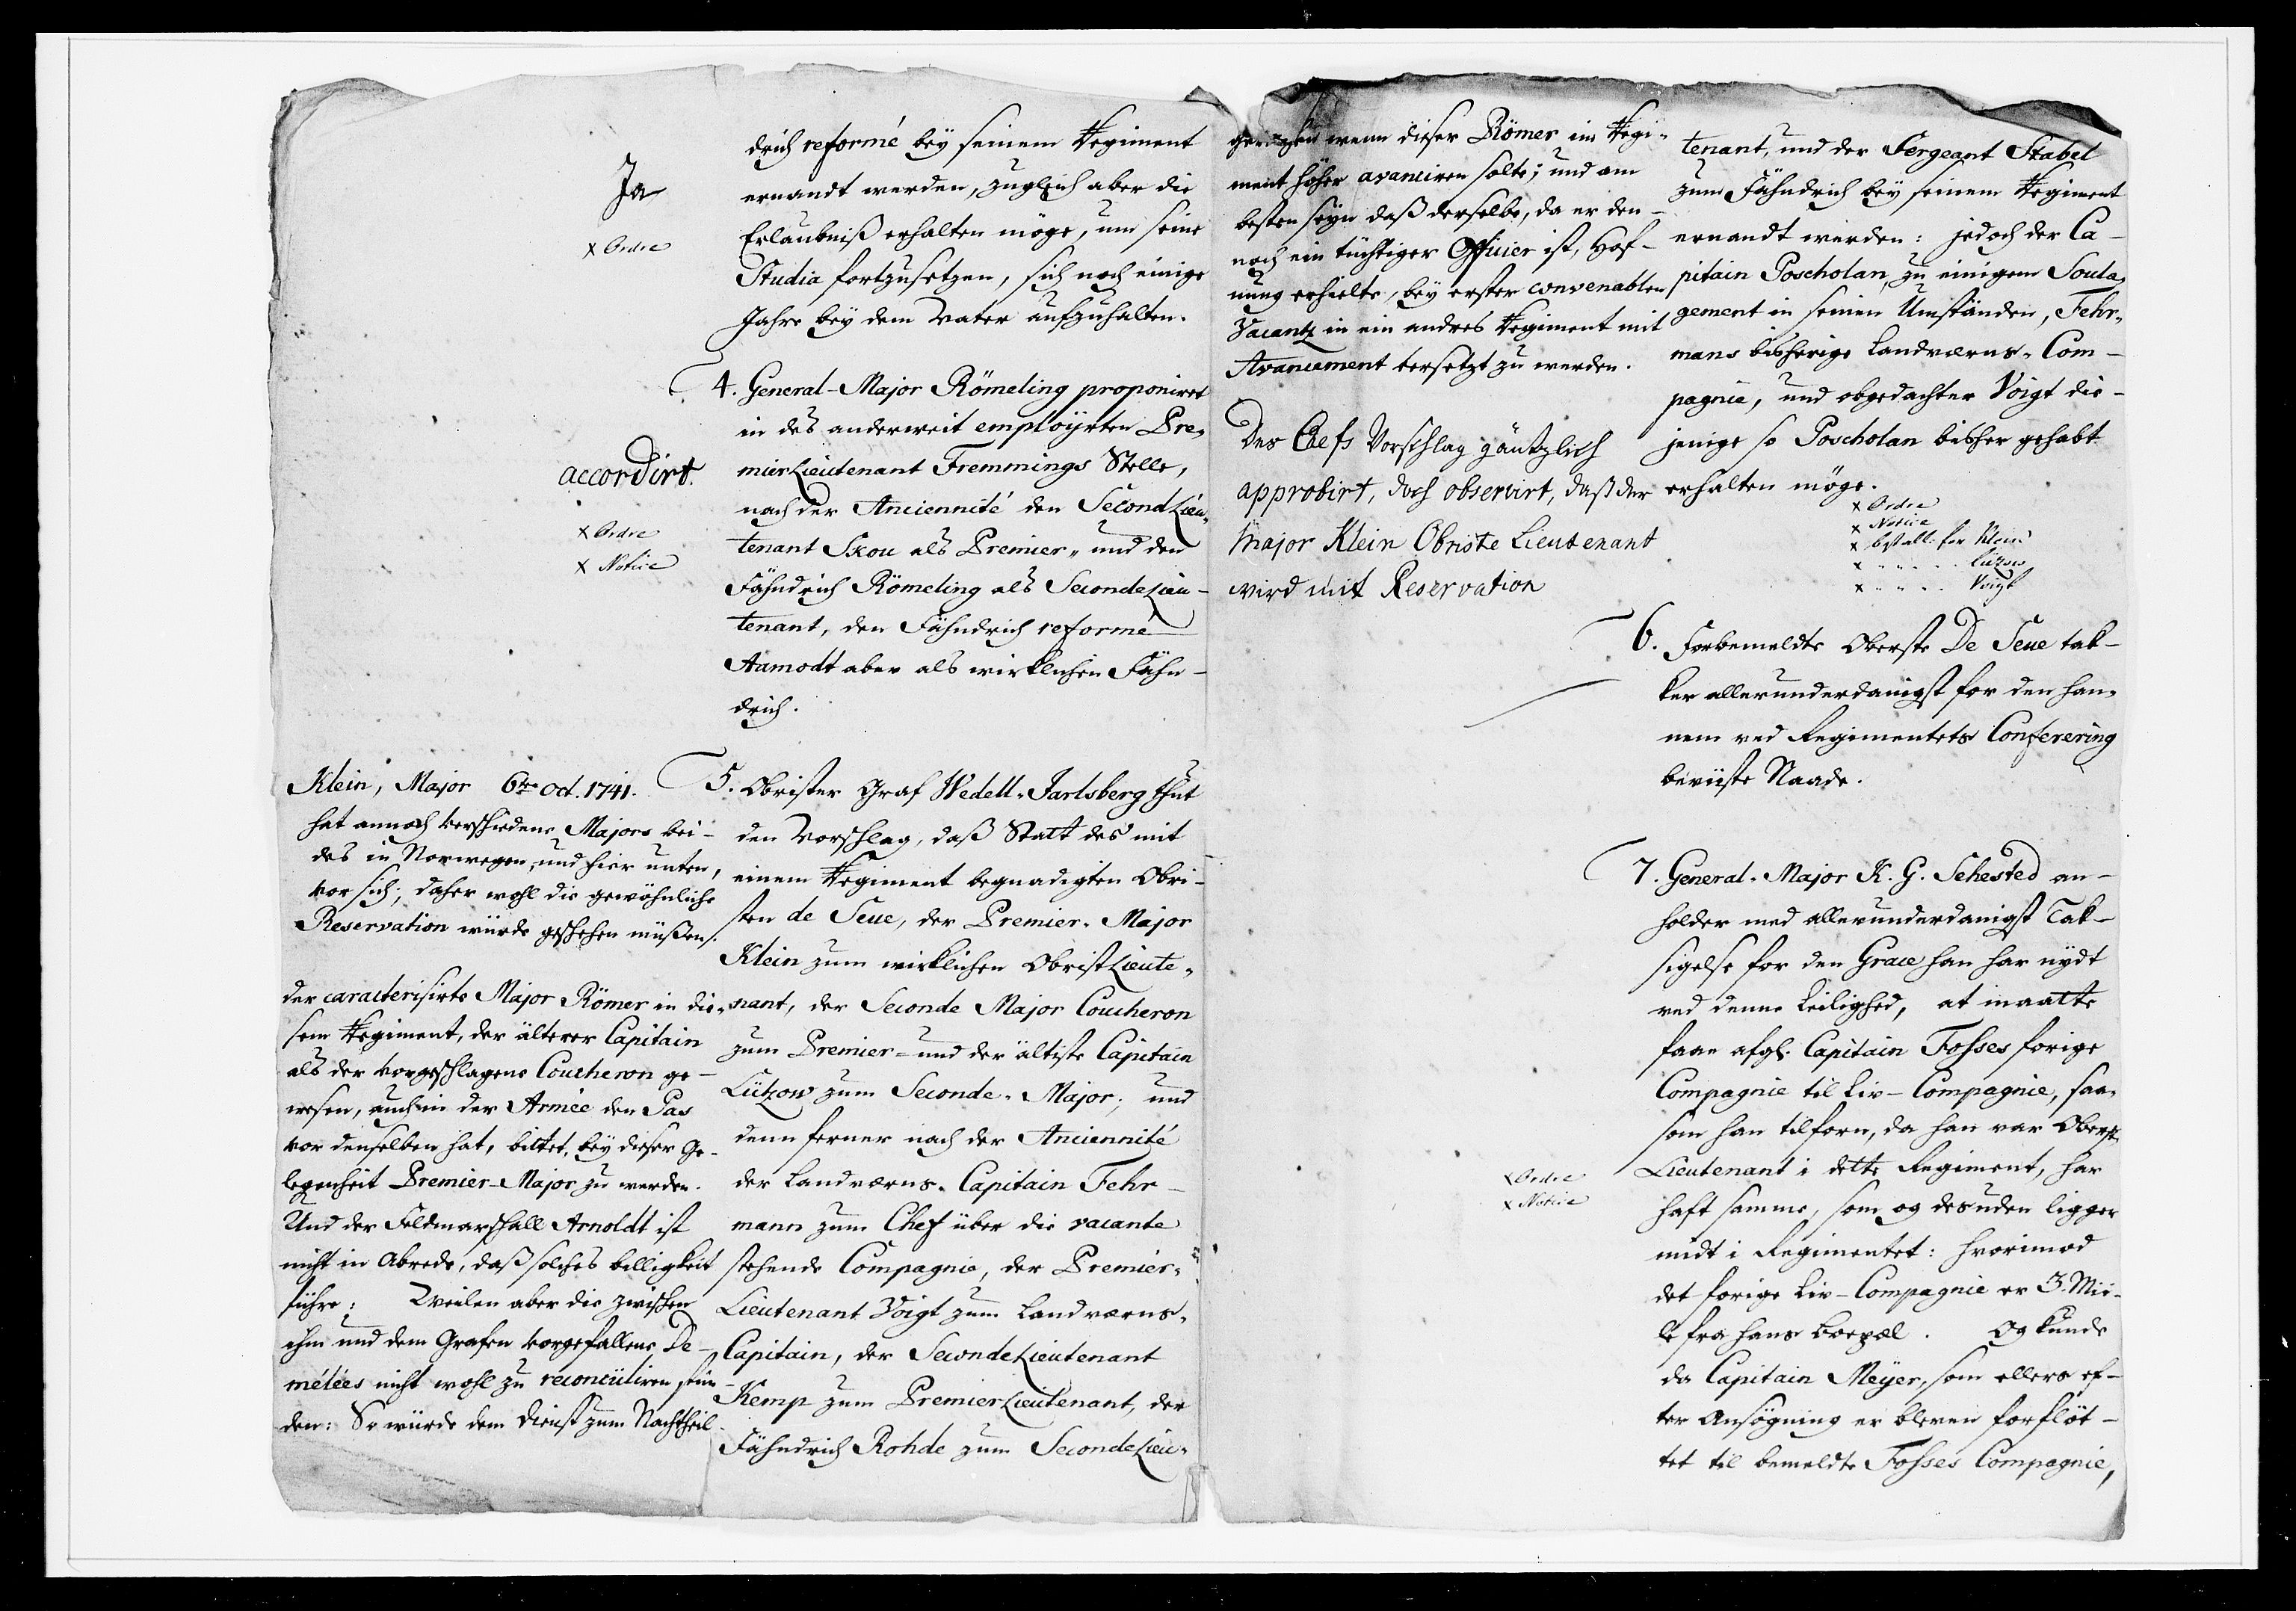 Ja
x Ordre
drich reformé bey seinem Regiment
ernandt werden, zugleich aber die
Erlaubniß erhalten möge, um seine
Studia fortzusetzen, sich noch einige
Jahre bey dem Vater aufzuhalten.
4. General-Major Römeling proponiret
in des anderweit employrten Pre-
mierLieutenant Fremmings Stelle,
nach der Anciennité den SecondLieu-
tenant Skou als Premier- und den
Fähndrich Römeling als SecondeLieu-
tenant, den Fähndrich reformé
Aamodt aber als wirklichen Fähn-
drich.
accordirt.
x Ordre
x Notice
Klein, Major 6te Oct. 1741.
hat annoch verschiedene Majors bei-
des in Norwegen, und hier unten,
vor sich; daher wohl die gewöhnliche
Reservation würde geschehen müßen.
der caracterisirte Major Römer in die-
sem Regiment, der älterer Capitain
als der vorgeschlagene Coucheron ge-
wesen, auch in der Armée den Pas
vor denselben hat, bittet, bey dieser Ge-
legenheit Premier-Major zu werden.
Und der Feldmarschall Arnoldt ist
nicht in Abrede, daß solches billigkeit
führe: Weilen aber die zwischen
ihm und dem Grafen vorgefallene De-
mélées nicht wohl zu reconciliiren stün-
den: So würde dem Dienst zum Nachtheil
5. Obrister Graf Wedell-Jarlsberg thut
den Vorschlag, daß Statt des mit
einem Regiment begnadigten Obri-
sten de Seue, der Premier-Major
Klein zum wirklichen ObristLieute-
nant, der Seconde Major Coucheron
zum Premier- und der ältiste Capitain
Lützow zum Seconde-Major; und
denn ferner nach der Anciennité
der Landværns-Capitain Fehr-
mann zum Chef über die vacante
stehende Compagnie, der Premier-
Lieutenant Voigt zum Landværns-
Capitain, der SecondeLieutenant
Kemp zum PremierLieutenant, der
Fähndrich Rohde zum SecondeLieu-
gereichen wenn dieser Römer im Regi-
ment höher avanciren solte; und am
besten seyn daß derselbe, da er den-
noch ein tüchtiger Officier ist, Hof-
nung erhielte, bey erster convenablen
Vacantz in ein andres Regiment mit
Avancement versetzt zu werden.
Des Chefs Vorschlag gäntzlich
approbirt, doch observirt, daß der
Major Klein Obriste Lieutenant
wird mit Reservation
tenant, und der Sergeant Stabel
zum Fähndrich bey seinem Regiment
ernandt werden: jedoch der Ca-
pitain Poscholan, zu einigem Soula-
gement in seinen Umständen, Fehr-
mans bisherige Landværns-Com-
pagnie, und obgedachter Voigt die-
jenige so Poscholan bisher gehabt
erhalten möge.
x Ordre
x Notice
x bestall. for Klein
x - - - - - Lützow
x - - - - Voigt
6. Forbemeldte Oberste De Seue tak-
ker allerunderdanigst for den han-
nem ved Regimentets Conferering
beviiste Naade.
7. General-Major K. G. Sehested an-
holder med allerunderdanigst Tak-
sigelse for den Grace han har nydt
ved denne Leilighed, at maatte
faae afg. Capitain Fosses forige
Compagnie til Liv-Compagnie, saa-
som han tilforn, da han var Oberst-
Lieutenant i dette Regiment, har
haft samme, som og desuden ligger
midt i Regimentet: hvorimod
det forige Liv-Compagnie er 3. Mii-
le fra hans Boepæl. Og kunde
da Capitain Meyer, som ellers ef-
ter Ansøgning er bleven forfløt-
tet til bemeldte Fosses Compagnie,
x Ordre
x Notice